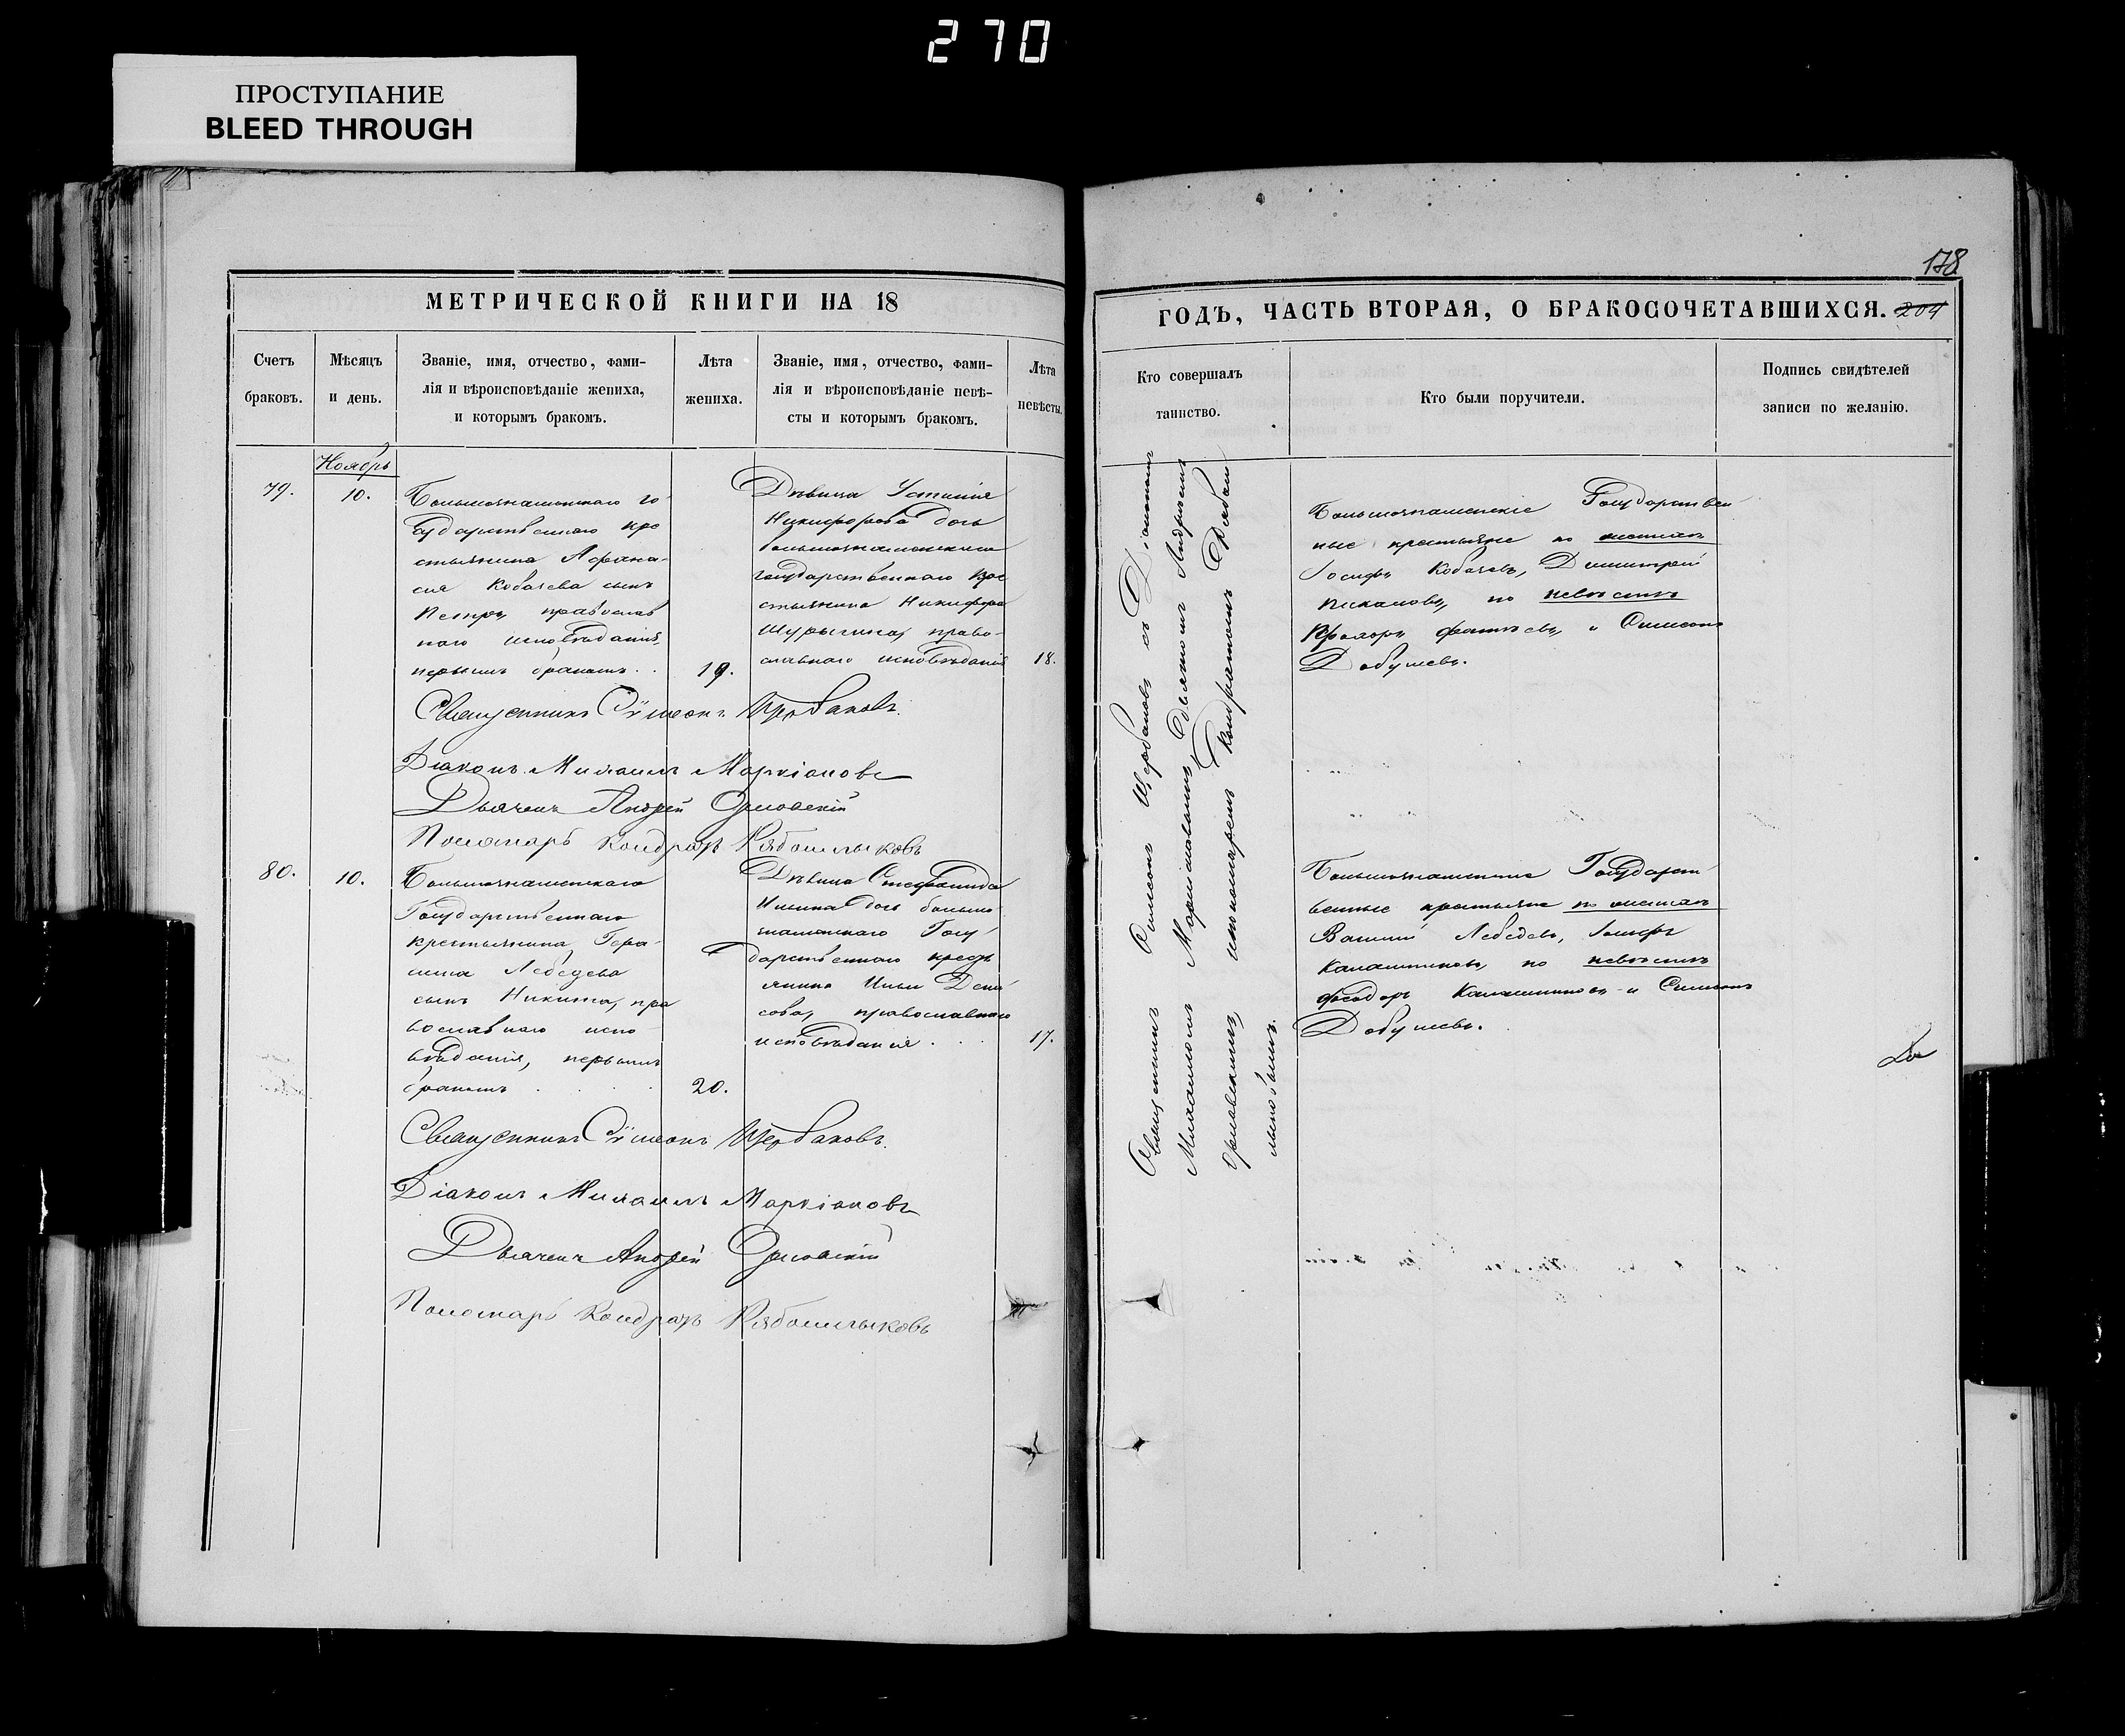 270
ПРОСТУПАНИЕ
BLEED THROUGH
МЕТРИЧЕСКОЙ КНИГИ НА 18
Счетъ
браковъ.
Мѣсяцъ
и день.
Званіе, имя, отчество, фами-
лія и вѣроисповѣданіе жениха,
и которымъ бракомъ.
Лѣта
жениха.
Званіе, имя, отчество, фами-
лія и вѣроисповѣданіе невѣ-
сты и которымъ бракомъ.
Лѣта
невѣсты.
Ноябрь
79.
10.
Большознаменскаго го-
сударственнаго кре
стьянина Афана-
сия Кобачева сынъ
Петръ, православ
наго исповѣданія,
первымъ бракомъ.
19.
Дѣвица Устинія
Никифорова дочь
большознаменскаго
государственнаго кре
стьянина Никифора
православнаго исповѣданія
18.
Священникъ Сѵмеонъ Щербаковъ.
Діаконъ Михаилъ Маркіановъ
Дьячекъ Андрей Орловскій
Пономарь Кондратъ
80.
10.
Большознаменскаго
Государственнаго
крестьянина Гера-
сима Лебедева
сынъ Никита, пра
вославнаго испо-
вѣданія, первымъ
бракомъ
20.
Дѣвица Стефанида
Ильина дочь больше
знаменскаго Госу-
дарственнаго кресть
янина Ильи Дени
сова, православнаго
исповѣданія
17.
Священникъ Сѵмеонъ Щербаковъ.
Діаконъ Михаилъ Маркіановъ
Дьячекъ Андрей Орловскій
Пономарь Кондратъ
178
ГОДЪ, ЧАСТЬ ВТОРАЯ, О БРАКОСОЧЕТАВШИХСЯ. 204
Кто совершалъ
таинство.
Кто были поручители.
Подпись свидѣтелей
записи по желанію.
Священникъ Симеонъ Щербаковъ съ Діакономъ
Михаиломъ Маркіановымъ, Дьячкомъ Андреемъ
Орловскимъ, и пономаремъ Кондратомъ
Большознаменскіе Государствен
ные крестьяне по женихѣ
Іосифъ Кобачевъ, Димитрій
по невѣстѣ
Прохоръ и Симеонъ
Добушевъ.
Большознаменскіе Государст-
венные крестьяне по женихѣ
Василій Лебедевъ, Іосифъ
Калашниковъ, по невѣстѣ
Феодоръ Калашниковъ и Симеонъ
Добушевъ.